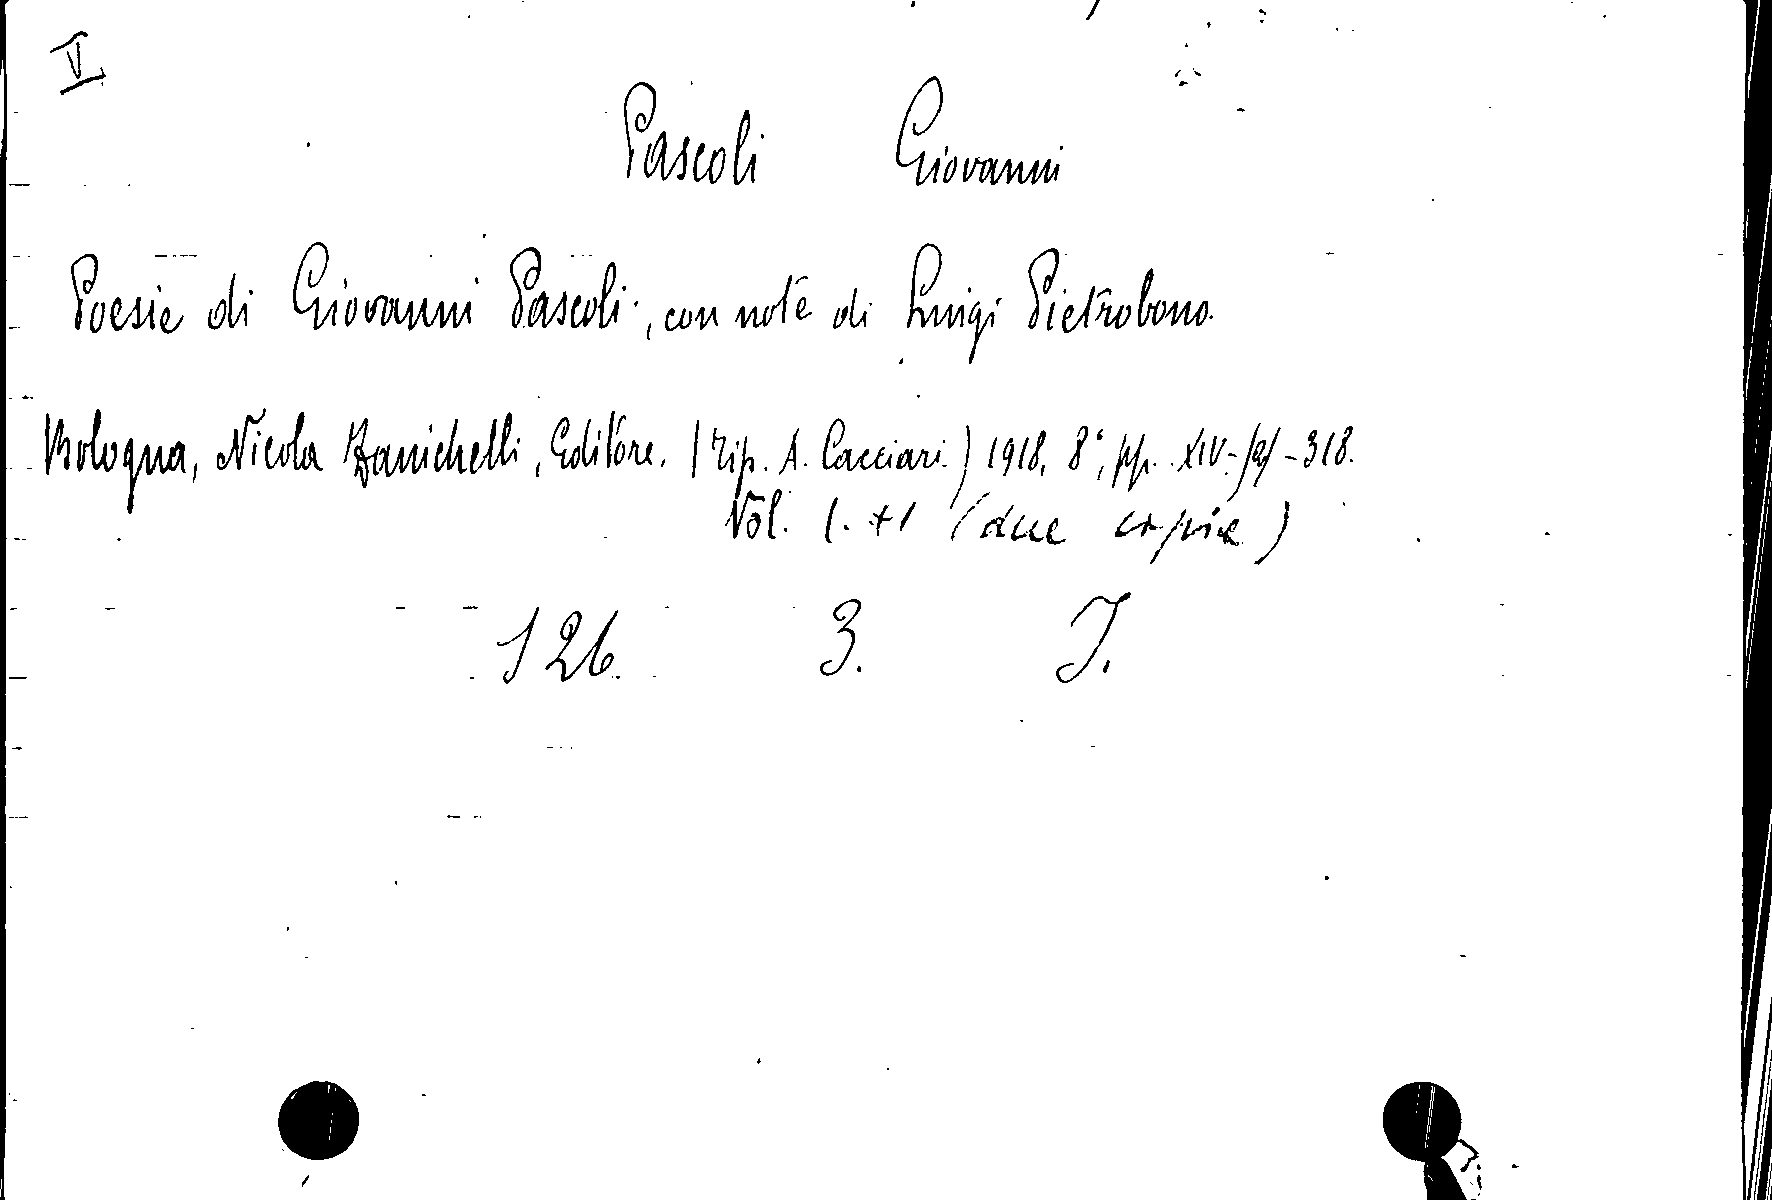 V
Pascoli Giovanni
Poesie di Giovanni Pascoli, con note di Luigi Pietrobono.
Bologna, Nicola Zanichelli, Editore. (Tip. A. Cacciari.) 1918, 8°, pp. XIV-[2]-318.
Vol. 1. +1 (due copie)
126. 3. I.